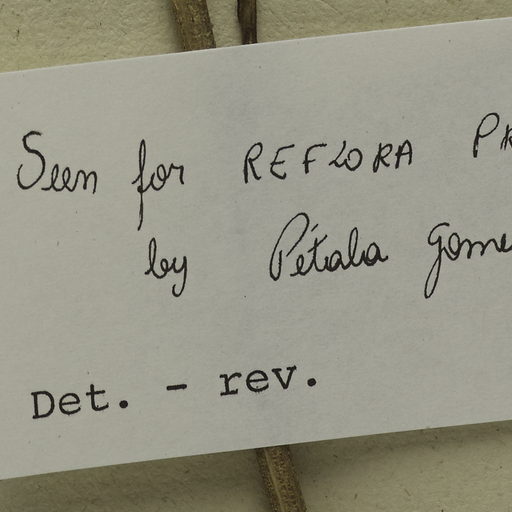 Seen for REFLORA
by Pétala
Det. - rev.